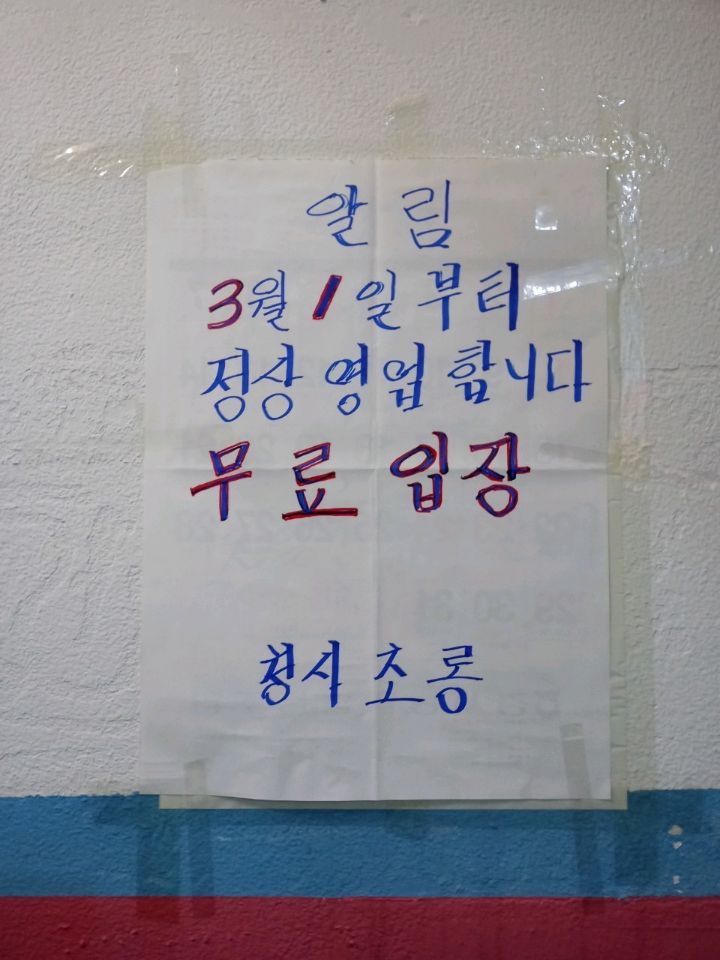 알림
3월 1일부터
정상 영업 합니다
무료 입장
청사초롱